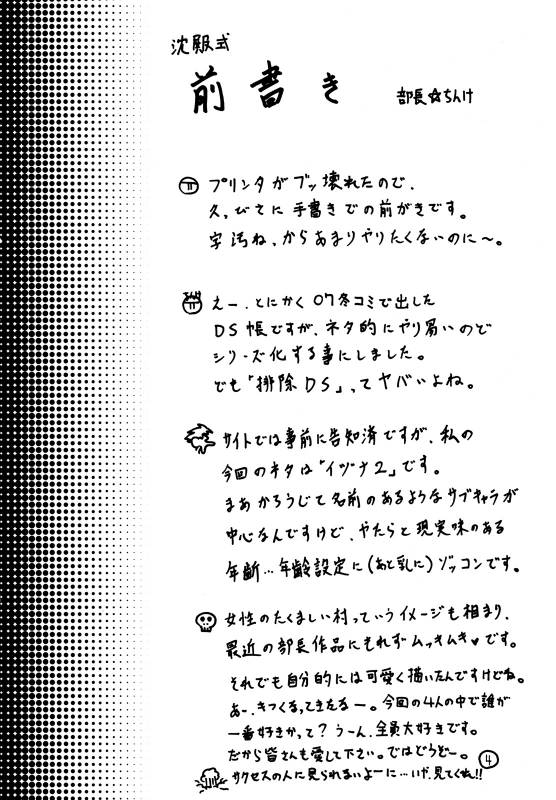 沈殿式
前書き
部長☆ちんけ
プリンタがブッ壊れたので、
久々びさに手書きでの前がきです。
字汚ね、からあまりやりたくないのに〜。
えー、とにかく07冬コミで出した
DS帳ですが、ネタ的にやり易いので
シリーズ化する事にしました。
でも「排除DS」、ってヤバいよね。
サイトでは事前に告知済ですが、私の
今回のネタは「イヅナ2」です。
まあかろうじて名前のあるようなサブキャラが
中心なんですけど、やたらと現実味のある
年断…年齢設定に(あと乳に)ゾッコンです。
女性のたくましい村っていうイメージも相まり、
最近の部長作品にもれずムッキムキ♥です。
それでも自分的には可愛く描いたんですけどね。
あー、きつくるってきえるー。今回の4人の中で誰が
一番好きかって?うーん、全員大好きです。
だから皆さんも愛して下さい。ではどうぞー。
サクセスの人に見られないよーに…いや、見てくれ!!
4